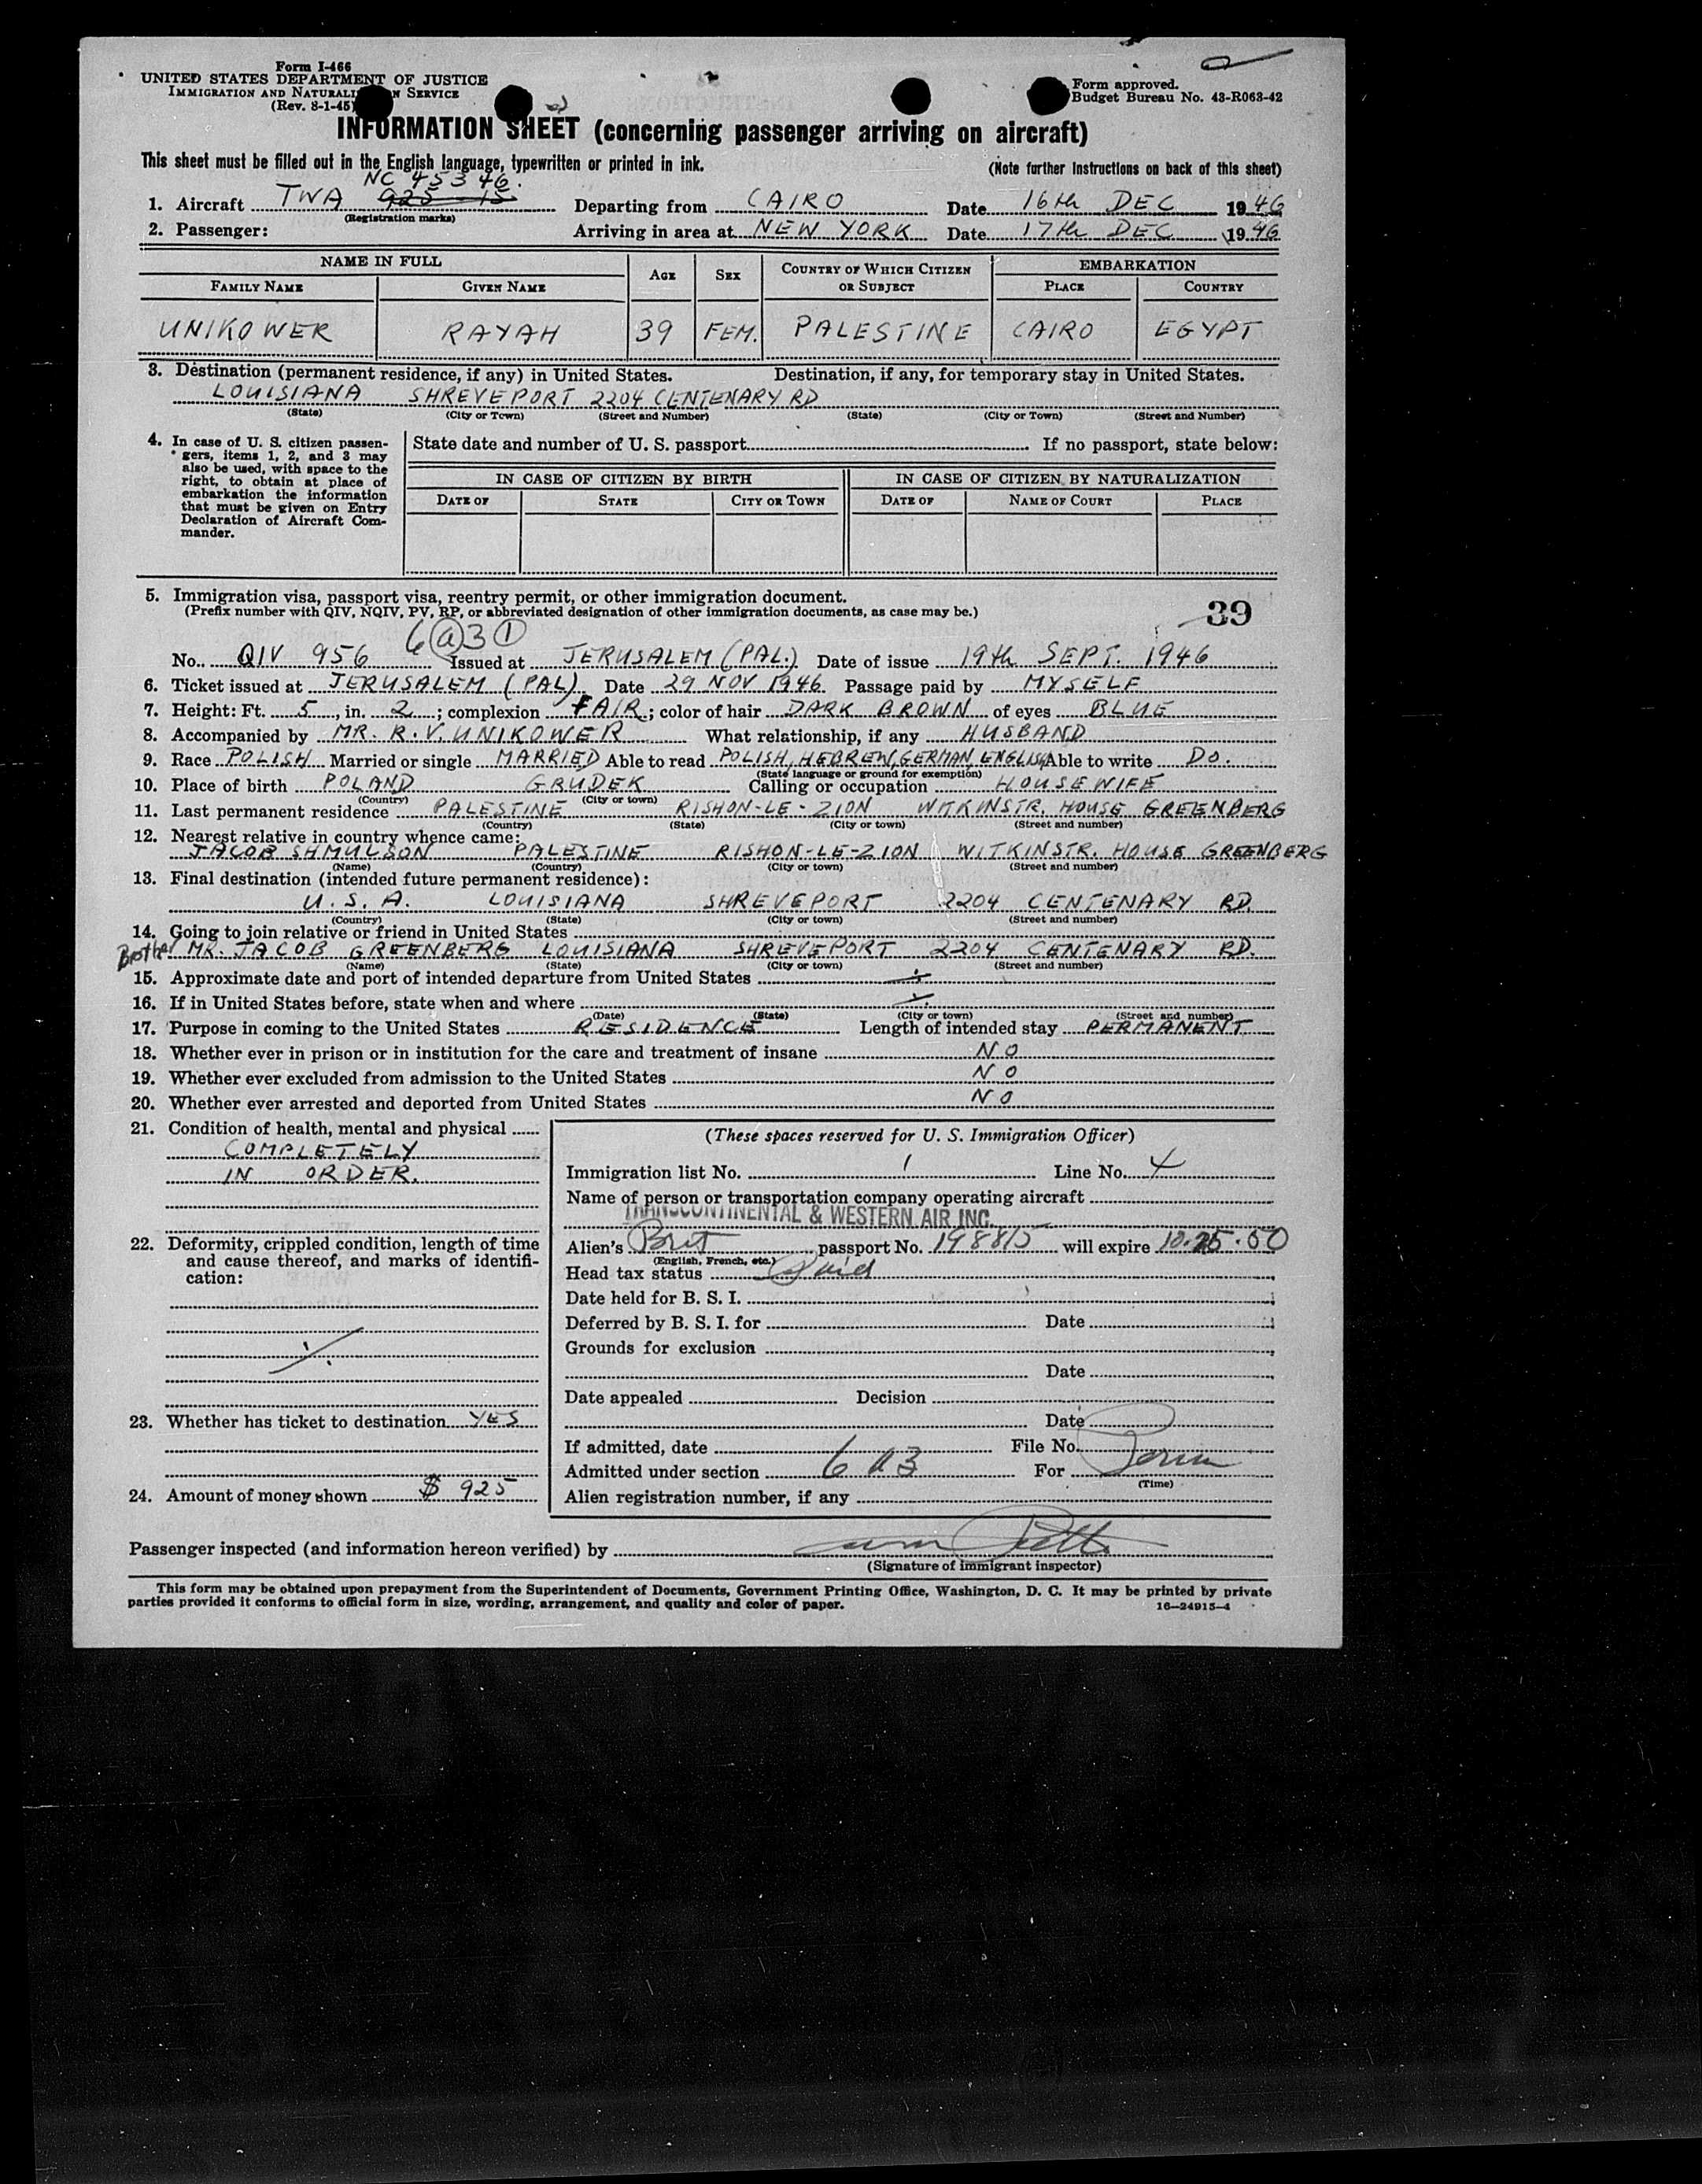 Form I-466
UNITED STATES DEPARTMENT OF JUSTICE
IMMIGRATION AND NATURALI N SERVICE
(Rev. 8-1-45)
Form approved.
Budget Bureau No. 43-R063-42
INFORMATION SHEET (concerning passenger arriving on aircraft)
This sheet must be filled out in the English language, typewritten or printed in ink. (Note further instructions on back of this sheet)
NC 45346.
1. Aircraft TWA 925 15 Departing from CAIRO Date 16th DEC 1946
(Registration marks)
2. Passenger: Arriving in area at NEW YORK Date 17th DEC 1946
NAME IN FULL AGE SEX COUNTRY OF WHICH CITIZEN OR SUBJECT EMBARKATION
FAMILY NAME GIVEN NAME PLACE COUNTRY
UNIKOWER RAYAH 39 FEM. PALESTINE CAIRO EGYPT
3. Destination (permanent residence, if any) in United States. Destination, if any, for temporary stay in United States.
LOUISIANA SHREVEPORT 2204 CENTENARY RD
(State) (City or Town) (Street and Number) (State) (City or Town) (Street and Number)
4. In case of U. S. citizen passen-
gers, items 1, 2, and 3 may
also be used, with space to the
right, to obtain at place of
embarkation the information
that must be given on Entry
Declaration of Aircraft Com-
mander.
State date and number of U. S. passport If no passport, state below:
IN CASE OF CITIZEN BY BIRTH IN CASE OF CITIZEN BY NATURALIZATION
DATE OF STATE CITY OR TOWN DATE OF NAME OF COURT PLACE
5. Immigration visa, passport visa, reentry permit, or other immigration document.
(Prefix number with QIV, NQIV, PV, RP, or abbreviated designation of other immigration documents, as case may be.)
39
6 a 3 1
No. QIV 956 Issued at JERUSALEM (PAL.) Date of issue 19th SEPT. 1946
6. Ticket issued at JERUSALEM (PAL) Date 29 NOV 1946 Passage paid by MYSELF
7. Height: Ft. 5, in. 2; complexion FAIR; color of hair DARK BROWN of eyes BLUE
8. Accompanied by MR. R.V. UNIKOWER What relationship, if any HUSBAND
9. Race POLISH Married or single MARRIED Able to read POLISH, HEBREW, GERMAN, ENGLISH Able to write DO.
(State language or ground for exemption)
10. Place of birth POLAND GRUDEK Calling or occupation HOUSEWIFE
(Country) (City or town)
11. Last permanent residence PALESTINE RISHON-LE-ZION WITKINSTR. HOUSE GREENBERG
(Country) (State) (City or town) (Street and number)
12. Nearest relative in country whence came:
JACOB SHMULSON PALESTINE RISHON-LE-ZION WITKINSTR. HOUSE GREENBERG
(Name) (Country) (City or town) (Street and number)
13. Final destination (intended future permanent residence):
U. S. A. LOUISIANA SHREVEPORT 2204 CENTENARY RD.
(Country) (State) (City or town) (Street and number)
14. Going to join relative or friend in United States
Brother MR. JACOB GREENBERG LOUISIANA SHREVEPORT 2204 CENTENARY RD.
(Name) (State) (City or town) (Street and number)
15. Approximate date and port of intended departure from United States
16. If in United States before, state when and where
(Date) (State) (City or town) (Street and number)
17. Purpose in coming to the United States RESIDENCE Length of intended stay PERMANENT
18. Whether ever in prison or in institution for the care and treatment of insane NO
19. Whether ever excluded from admission to the United States NO
20. Whether ever arrested and deported from United States NO
21. Condition of health, mental and physical
COMPLETELY
IN ORDER.
22. Deformity, crippled condition, length of time
and cause thereof, and marks of identifi-
cation:
23. Whether has ticket to destination YES
24. Amount of money shown $ 925
(These spaces reserved for U. S. Immigration Officer)
Immigration list No. 1 Line No. 4
Name of person or transportation company operating aircraft
TRANSCONTINENTAL & WESTERN AIR INC.
Alien's Brit passport No. 198815 will expire 10-25-50
(English, French, etc.)
Head tax status Paid
Date held for B. S. I.
Deferred by B. S. I. for Date
Grounds for exclusion
Date
Date appealed Decision
Date
If admitted, date File No.
Admitted under section 6 a 3 For Perm
(Time)
Alien registration number, if any
Passenger inspected (and information hereon verified) by
(Signature of immigrant inspector)
This form may be obtained upon prepayment from the Superintendent of Documents, Government Printing Office, Washington, D. C. It may be printed by private
parties provided it conforms to official form in size, wording, arrangement, and quality and color of paper. 16—24915-4